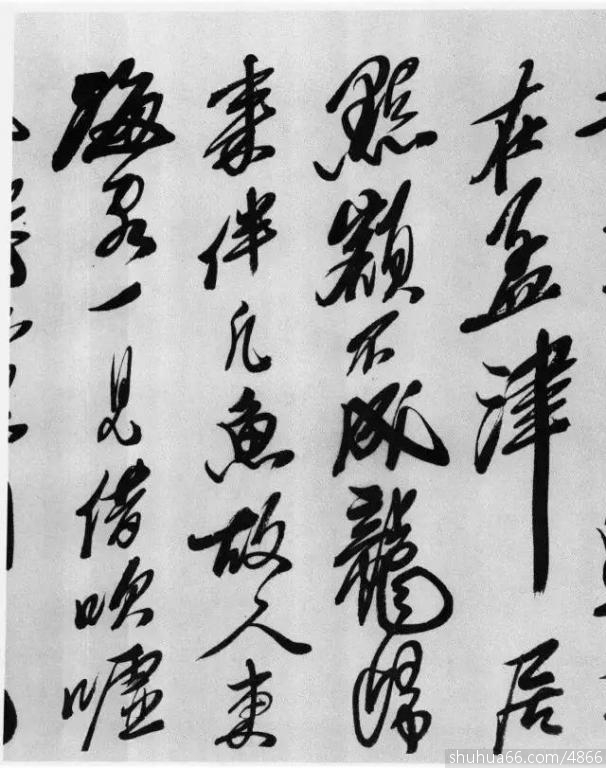 在孟津居
點額不成龍歸
來伴凡魚故人東
海客一見借吹噓
shuhua66.com/4866